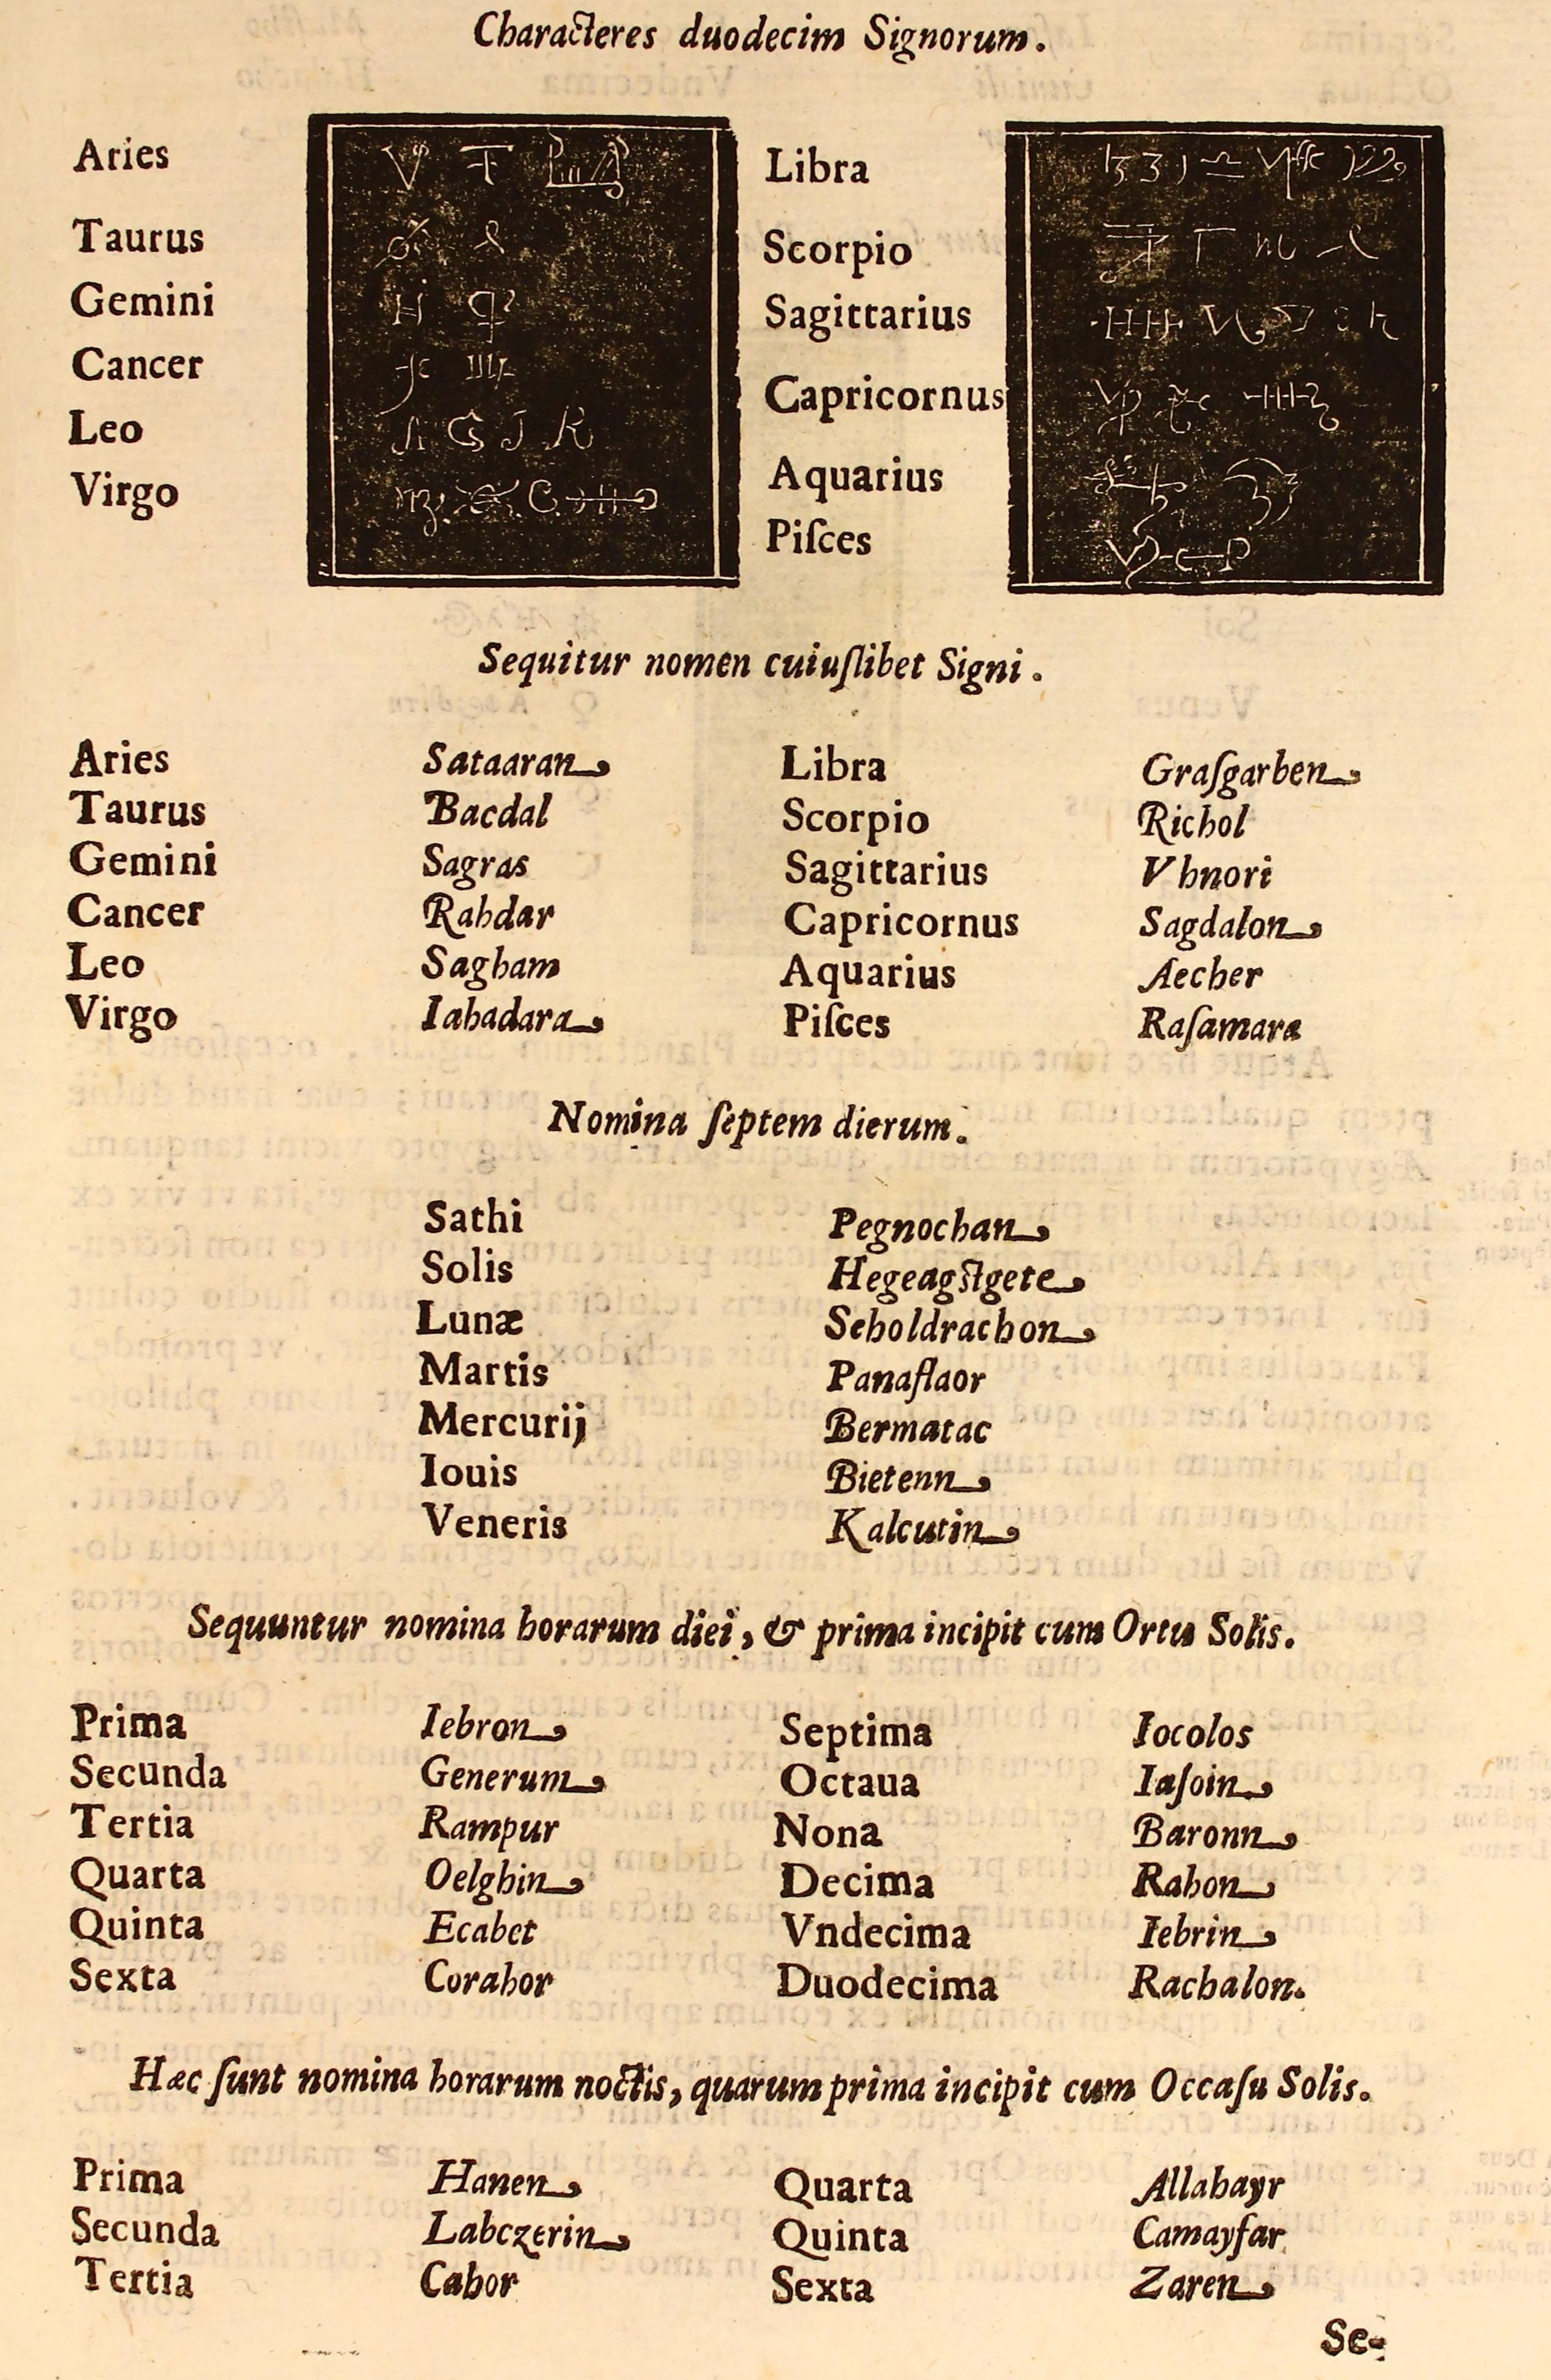 Characteres duodecim Signorum.
Aries
Taurus
Gemini
Cancer
Leo
Virgo
Libra
Scorpio
Sagittarius
Capricornus
Aquarius
Piſces
Sequitur nomen cuiuſlibet Signi.
Aries Sataaran Libra Graſgarben
Taurus Bacdal Scorpio Richol
Gemini Sagras Sagittarius Vhnori
Cancer Rahdar Capricornus Sagdalon
Leo Sagham Aquarius Aecher
Virgo Iahadara Piſces Raſamara
Nomina ſeptem dierum.
Sathi Pegnochan
Solis Hegeagſtgete
Lunæ Seholdrachon
Martis Panaflaor
Mercurij Bermatac
Iouis Bietenn
Veneris Kalcutin
Sequuntur nomina horarum diei, & prima incipit cum Ortu Solis.
Prima Iebron Septima Iocolos
Secunda Generum Octaua Iaſoin
Tertia Rampur Nona Baronn
Quarta Oelghin Decima Rahon
Quinta Ecabet Vndecima Iebrin
Sexta Corahor Duodecima Rachalon.
Hæc ſunt nomina horarum noctis, quarum prima incipit cum Occaſu Solis.
Prima Hanen Quarta Allahayr
Secunda Labczerin Quinta Camayfar
Tertia Cahor Sexta Zaren
Se-